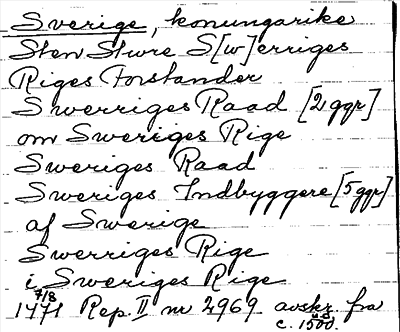 Sverige, konungarike
Sten Sture S[w]erriges
Riges Forstander
Swerriges Raad [2 ggr]
om Sweriges Rige
Sweriges Raad
Sweriges Indbyggere [5 ggr]
af Swerige
Swerriges Rige
i Sweriges Rige
7/8
1471 Rep. II nr 2969 avskr. fra
c. 1500